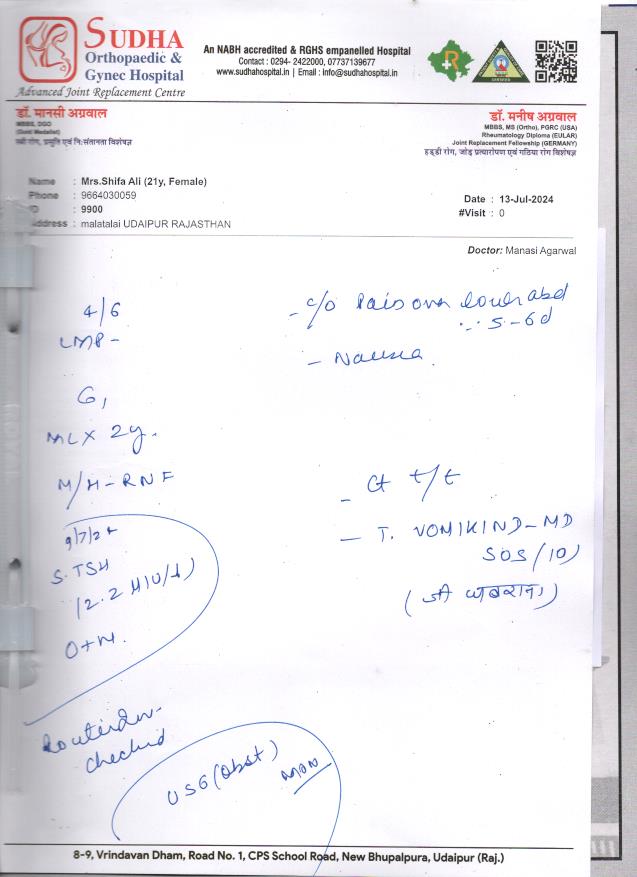 SUDHA
Orthopaedic &
Gynec Hospital
Advanced Joint Replacement Centre
An NABH accredited & RGHS empanelled Hospital
Contact : 0294- 2422000, 07737139677
www.sudhahospital.in | Email : info@sudhahospital.in
डॉ. मानसी अग्रवाल
MBBS, DGO
(Gold Medalist)
स्त्री रोग, प्रसुति एवं नि:संतानता विशेषज्ञ
डॉ. मनीष अग्रवाल
MBBS, MS (Ortho), PGRC (USA)
Rheumatology Diploma (EULAR)
Joint Replacement Fellowship (GERMANY)
हड्डी रोग, जोड़ प्रत्यारोपण एवं गठिया रोग विशेषज्ञ
Name : Mrs.Shifa Ali (21y, Female)
Phone : 9664030059
ID : 9900
Address : malatalai UDAIPUR RAJASTHAN
Date : 13-Jul-2024
#Visit : 0
Doctor: Manasi Agarwal
4/6
LMP -
G1
ML X 2y.
M/H - RNF
9/7/24
S. TSH
(2.2 MIU/L)
- c/o Pain over lower abd
5-6d
- Nausea.
- Ct t/t
- T. VOMIKIND-MD
SOS/10)
(जी घबराना)
checked
USG (Obst)
8-9, Vrindavan Dham, Road No. 1, CPS School Road, New Bhupalpura, Udaipur (Raj.)